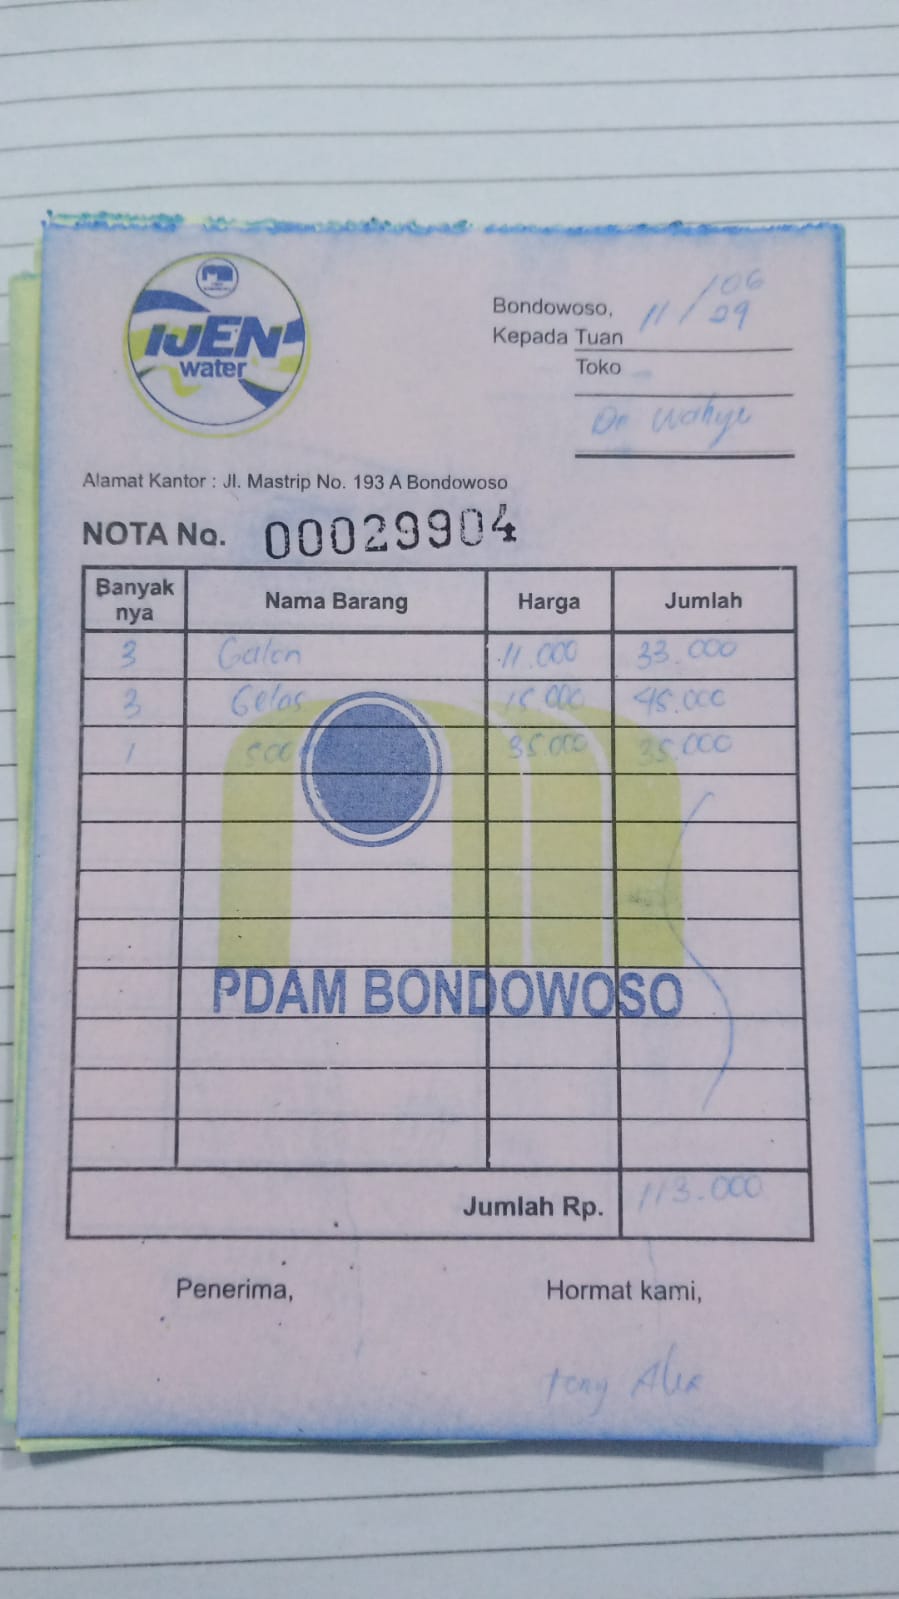 IJEN
water
Bondowoso, 11/06
Kepada Tuan
Toko
Wahyu
Alamat Kantor : Jl. Mastrip No. 193 A Bondowoso
NOTA No. 00029904
Banyak nya Nama Barang Harga Jumlah
3 Galon 11.000 33.000
3 Gelas 15.000 45.000
1 35.000 35.000
PDAM BONDOWOSO
Jumlah Rp. 113.000
Penerima, Hormat kami,